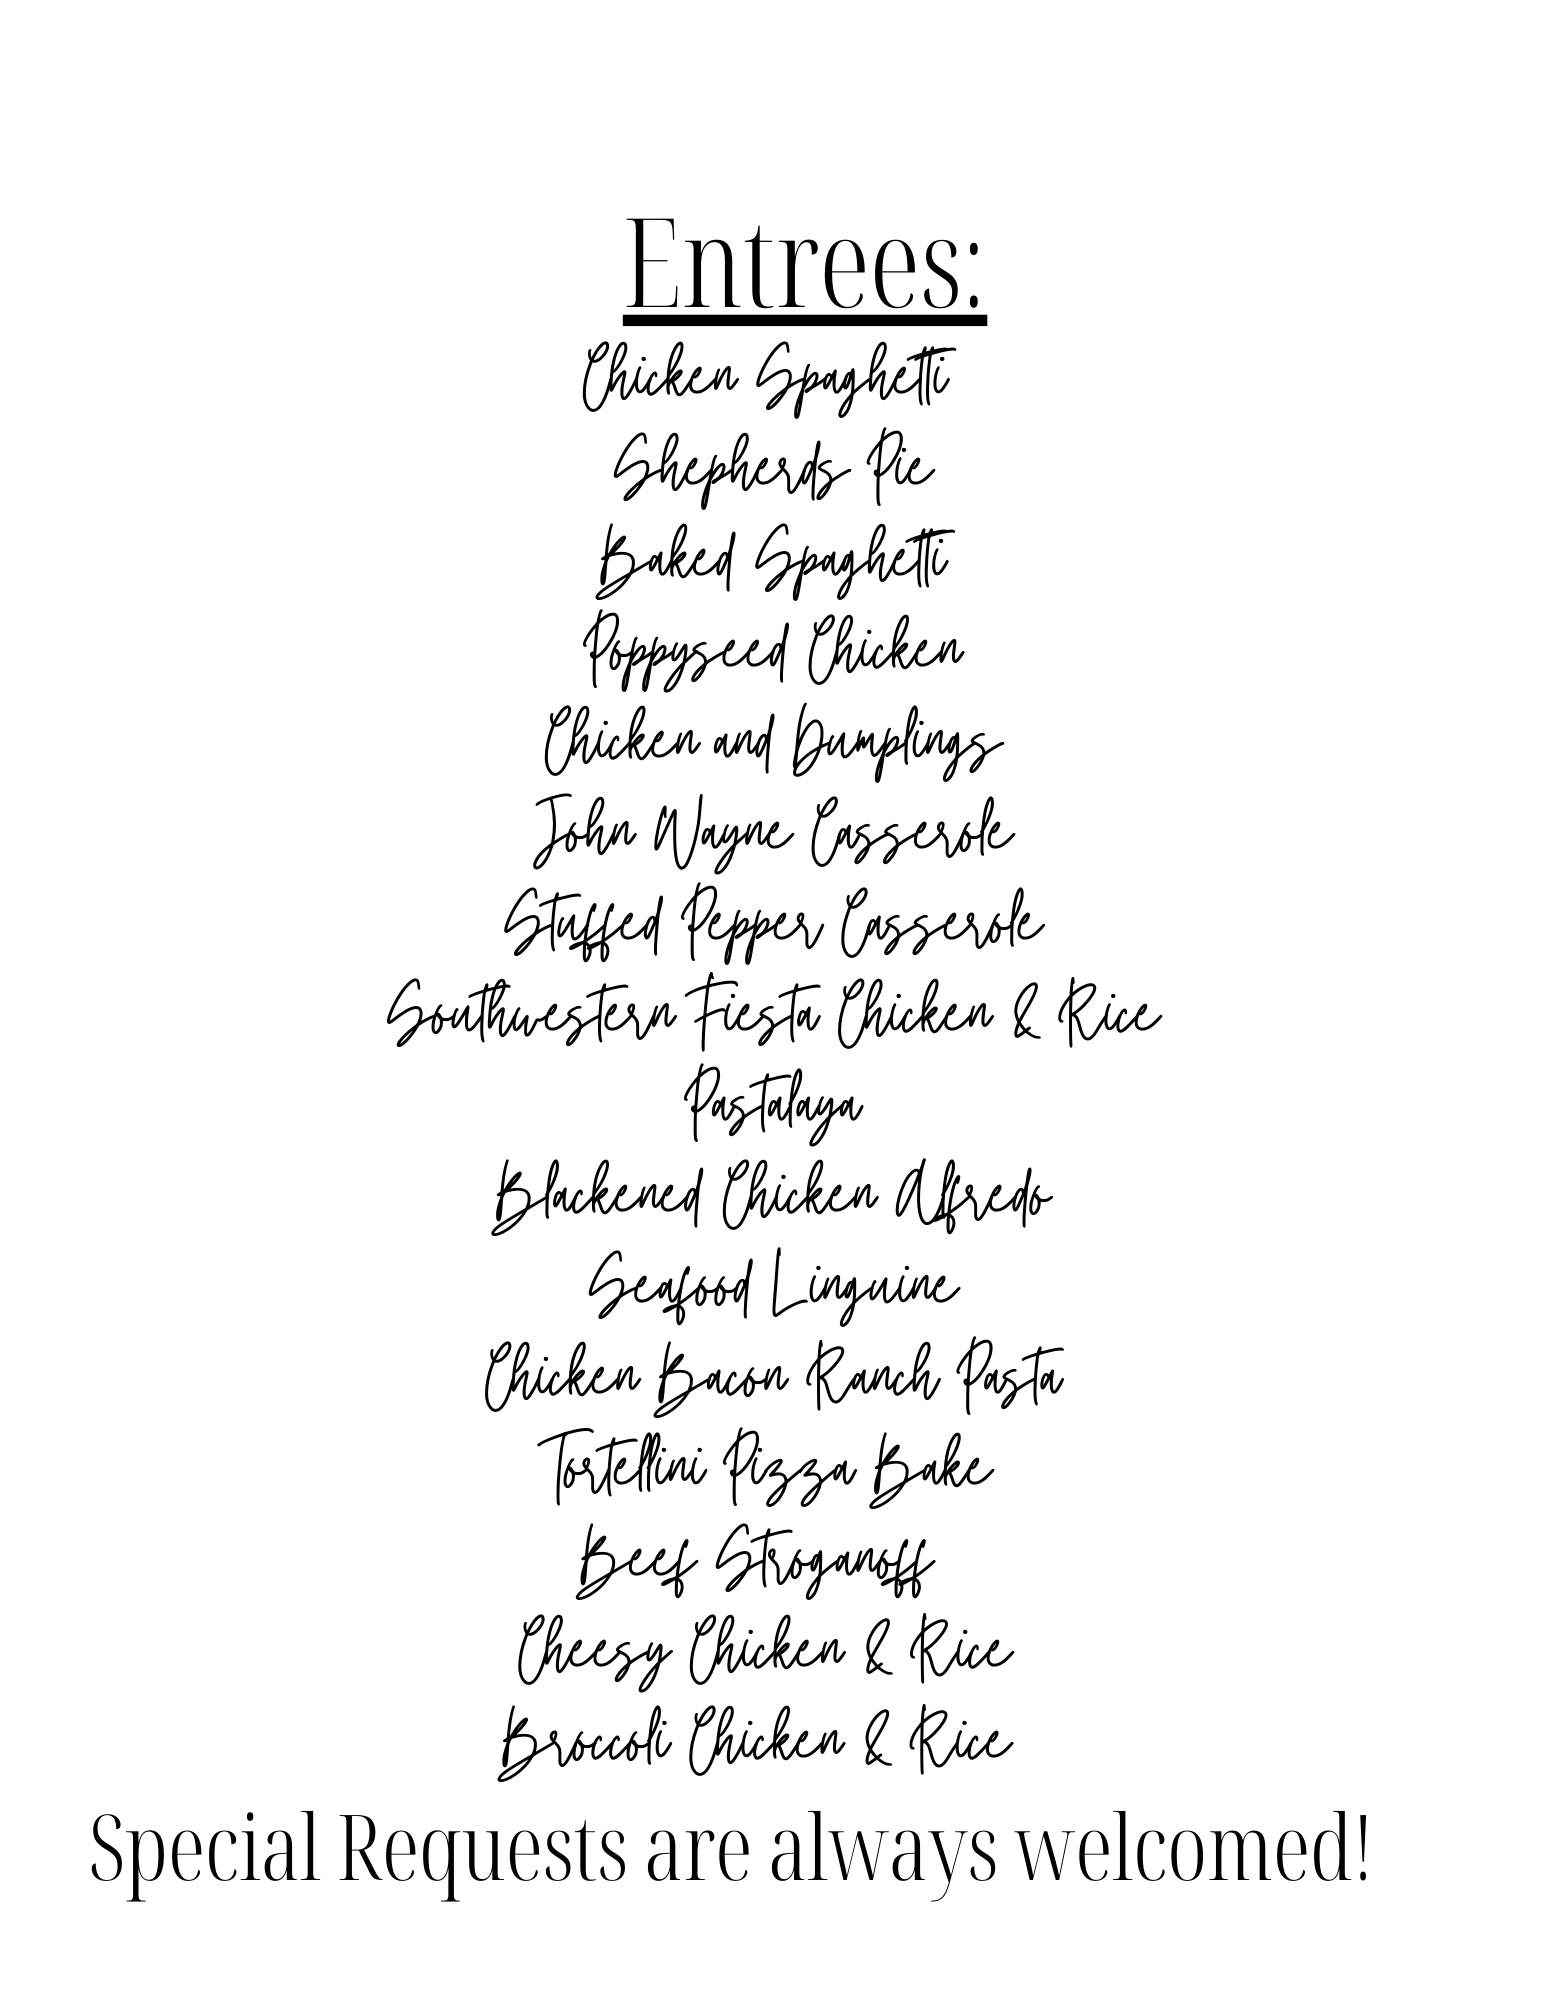 Entrees:
Chicken Spaghetti
Shepherds Pie
Baked Spaghetti
Poppyseed Chicken
Chicken and Dumplings
John Wayne Casserole
Stuffed Pepper Casserole
Southwestern Fiesta Chicken & Rice
Pastalaya
Blackened Chicken Alfredo
Seafood Linguine
Chicken Bacon Ranch Pasta
Tortellini Pizza Bake
Beef Stroganoff
Cheesy Chicken & Rice
Broccoli Chicken & Rice
Special Requests are always welcomed!